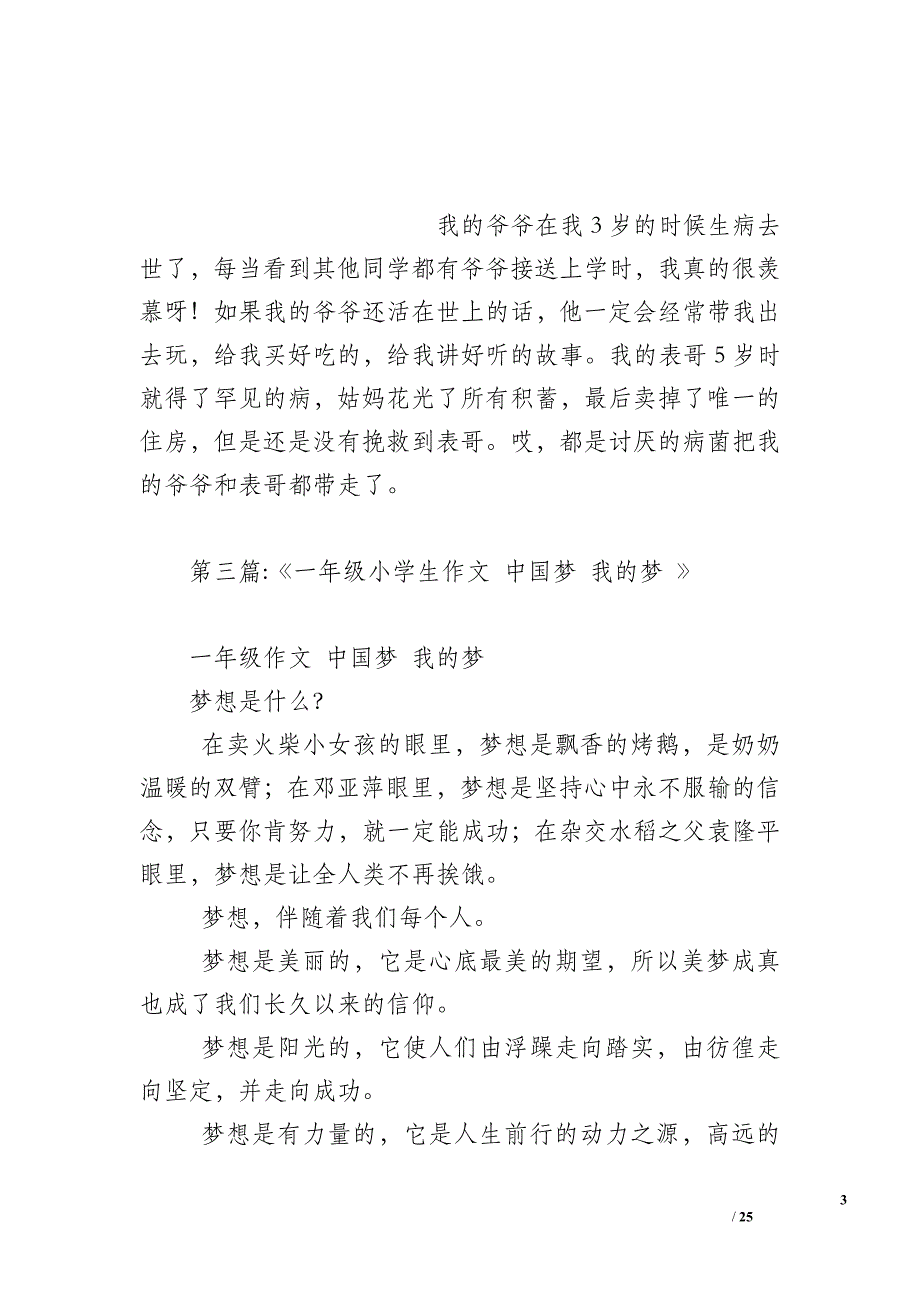 我的爷爷在我3岁的时候生病去
世了，每当看到其他同学都有爷爷接送上学时，我真的很羡
慕呀！如果我的爷爷还活在世上的话，他一定会经常带我出
去玩，给我买好吃的，给我讲好听的故事。我的表哥5岁时
就得了罕见的病，姑妈花光了所有积蓄，最后卖掉了唯一的
住房，但是还是没有挽救到表哥。哎，都是讨厌的病菌把我
的爷爷和表哥都带走了。
第三篇:《一年级小学生作文 中国梦 我的梦 》
一年级作文 中国梦 我的梦
梦想是什么?
在卖火柴小女孩的眼里，梦想是飘香的烤鹅，是奶奶
温暖的双臂；在邓亚萍眼里，梦想是坚持心中永不服输的信
念，只要你肯努力，就一定能成功；在杂交水稻之父袁隆平
眼里，梦想是让全人类不再挨饿。
梦想，伴随着我们每个人。
梦想是美丽的，它是心底最美的期望，所以美梦成真
也成了我们长久以来的信仰。
梦想是阳光的，它使人们由浮躁走向踏实，由彷徨走
向坚定，并走向成功。
梦想是有力量的，它是人生前行的动力之源，高远的
3
/ 25